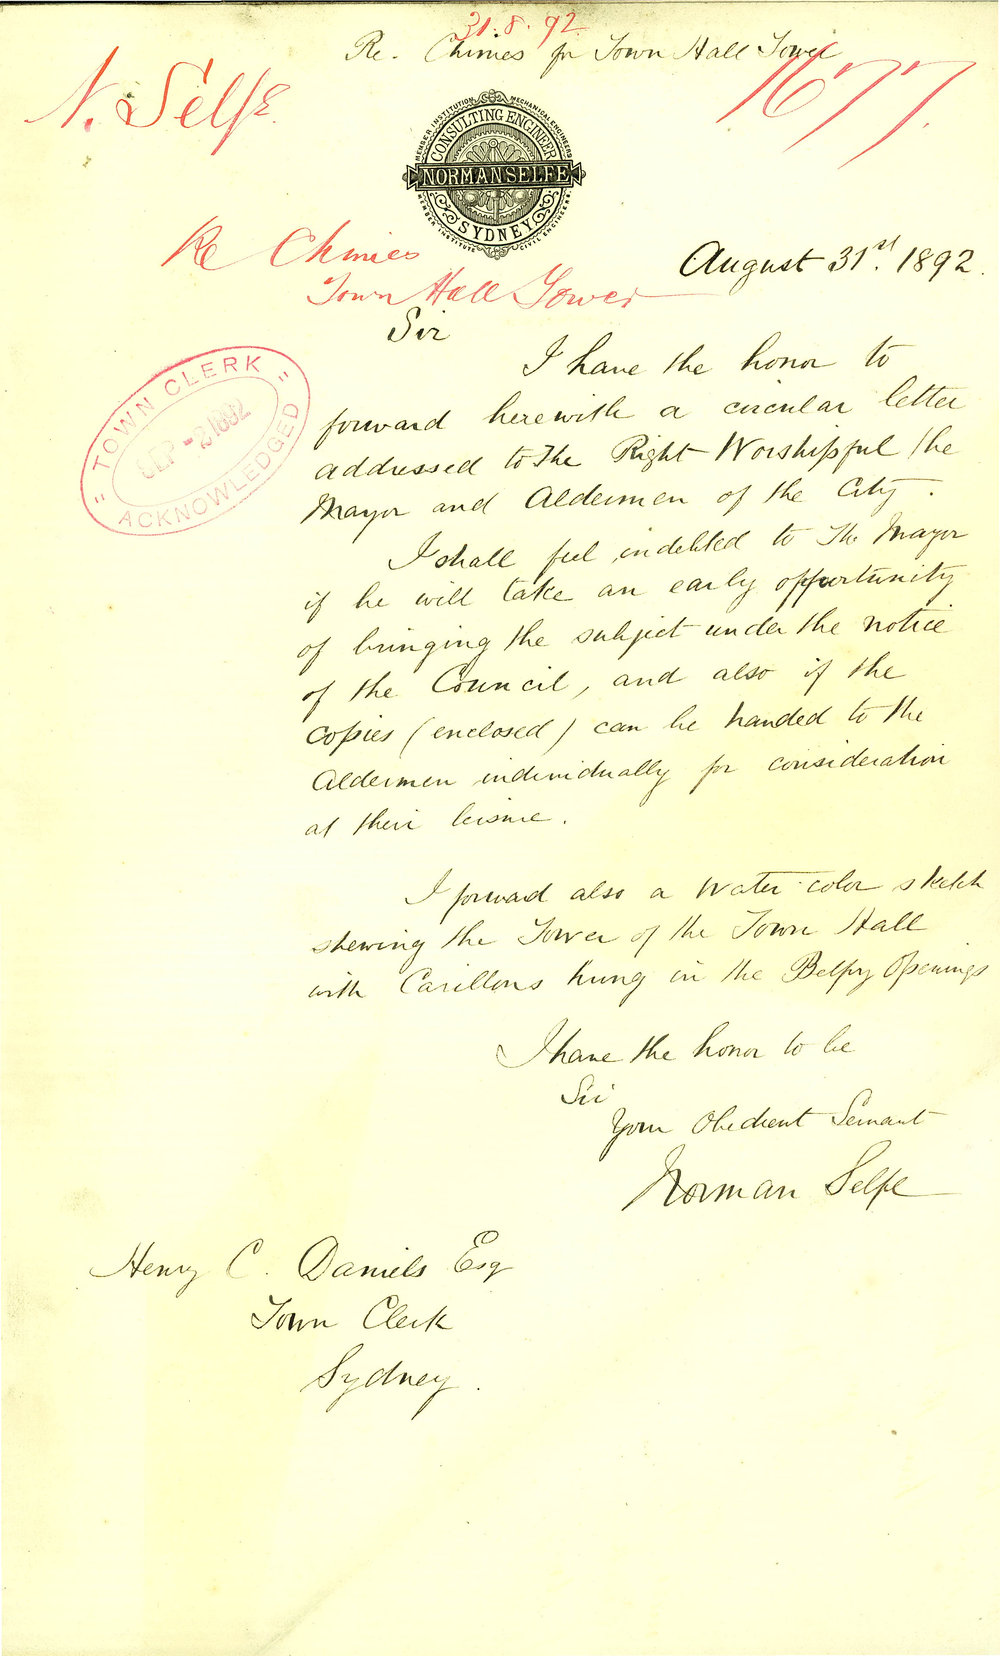 31.8.92
Re. Chimes for Town Hall Tower
N. Selfe
1677.
MEMBER INSTITUTION MECHANICAL ENGINEERS
CONSULTING ENGINEER
NORMAN SELFE
SYDNEY
MEMBER INSTITUTE CIVIL ENGINEERS
Re Chimes
Town Hall Tower
August 31st. 1892.
Sir
I have the honor to
forward herewith a circular letter
addressed to The Right Worshipful The
Mayor and Aldermen of the City.
"TOWN CLERK"
SEP -2 1892
ACKNOWLEDGED
I shall feel indebted to The Mayor
if he will take an early opportunity
of bringing the subject under the notice
of the Council, and also if the
copies (enclosed) can be handed to the
Aldermen individually for consideration
at their leisure.
I forward also a Water color sketch
shewing the Tower of the Town Hall
with Carillons hung in the Belfry Openings
I have the honor to be
Sir
Your Obedient Servant
Norman Selfe
Henry C. Daniels Esq
Town Clerk
Sydney.